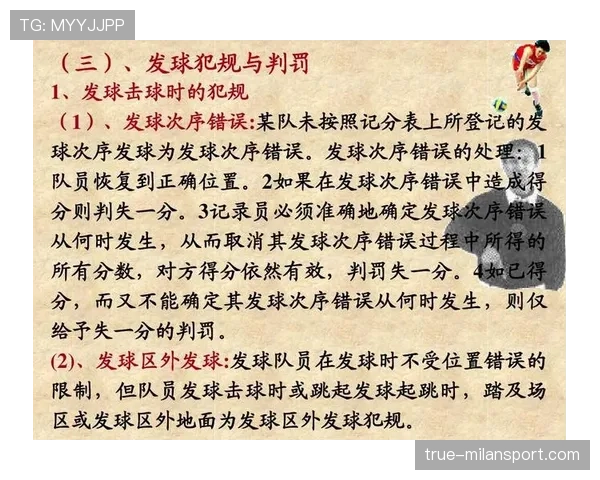 TG: MYYJJPP
（三）、发球犯规与判罚
1、发球击球时的犯规
（1）、发球次序错误:某队未按照记分表上所登记的发
球次序发球为发球次序错误。发球次序错误的处理：1
队员恢复到正确位置。2如果在发球次序错误中造成得
分则判失一分。3记录员必须准确地确定发球次序错误
从何时发生，从而取消其发球次序错误过程中所得的
所有分数，对方得分依然有效，判罚失一分。4如已得
分，而又不能确定其发球次序错误从何时发生，则仅
给予失一分的判罚。
(2)、发球区外发球:发球队员在发球时不受位置错误的
限制，但队员发球击球时或跳起发球起跳时，踏及场
区或发球区外地面为发球区外发球犯规。
true-milansport.com